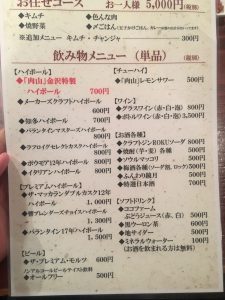 お任せコース お一人様 5,000円(税別)
◆キムチ ◆色んな肉
◆焼野菜
※追加メニュー キムチ・チャンジャ 300円
飲み物メニュー（単品）(税別)
【ハイボール】
◆「肉山」金沢特製
ハイボール 700円
◆メーカーズクラフトハイボール
600円
◆知多ハイボール 700円
◆バランタインマスターズハイボール
◆ラフロイグセレクトカスクハイボール
◆ボウモア12年ハイボール
◆イタリアンハイボール 800円
【プレミアムハイボール】
◆ザ・マッカランダブルカスク12年
ハイボール 1,000円
◆響ブレンダーズチョイスハイボール
◆バランタイン17年ハイボール
1,500円
【ビール】
◆ザ・プレミアム・モルツ 600円
ノンアルコールビールテイスト飲料
◆オールフリー 500円
【チューハイ】
◆「肉山」レモンサワー 500円
【ワイン】
◆グラスワイン(赤・白・泡) 800円
◆ボトルワイン(赤・白・泡) 3,500円
【お酒各種】
◆クラフトジンROKUソーダ 800円
◆焼酎(芋・麦)各種 500円
◆ソウルマッコリ 500円
◆梅酒各種(ソーダ割、ロック) 500円
◆特選日本酒 700円
【ソフトドリンク】
◆ココファーム
ぶどうジュース(赤、白) 500円
◆黒ウーロン茶 600円
◆地サイダー 500円
◆ミネラルウォーター 100円
(お酒を飲まれる方は無料)